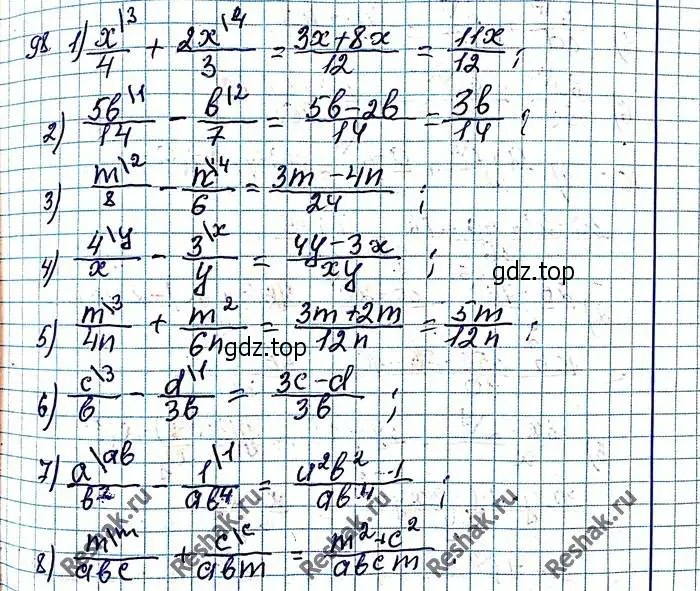 98. 1) x\3/4 + 2x\4/3 = 3x+8x/12 = 11x/12 ;
2) 5b\1/14 − b\2/7 = 5b−2b/14 = 3b/14 ;
3) m\2/8 − n\4/6 = 3m−4n/24 ;
4) 4\y/x − 3\x/y = 4y−3x/xy ;
gdz.top
5) m\3/4n + m²/6n = 3m+2m/12n = 5m/12n ;
gdz.top
6) c\3/b − d\1/3b = 3c−d/3b ;
7) a\ab/b² − 1\1/ab⁴ = a²b²−1/ab⁴ ;
8) m\m/abc + c\c/abm = m²+c²/abcm .
Reshak.ru Reshak.ru Reshak.ru Reshak.ru